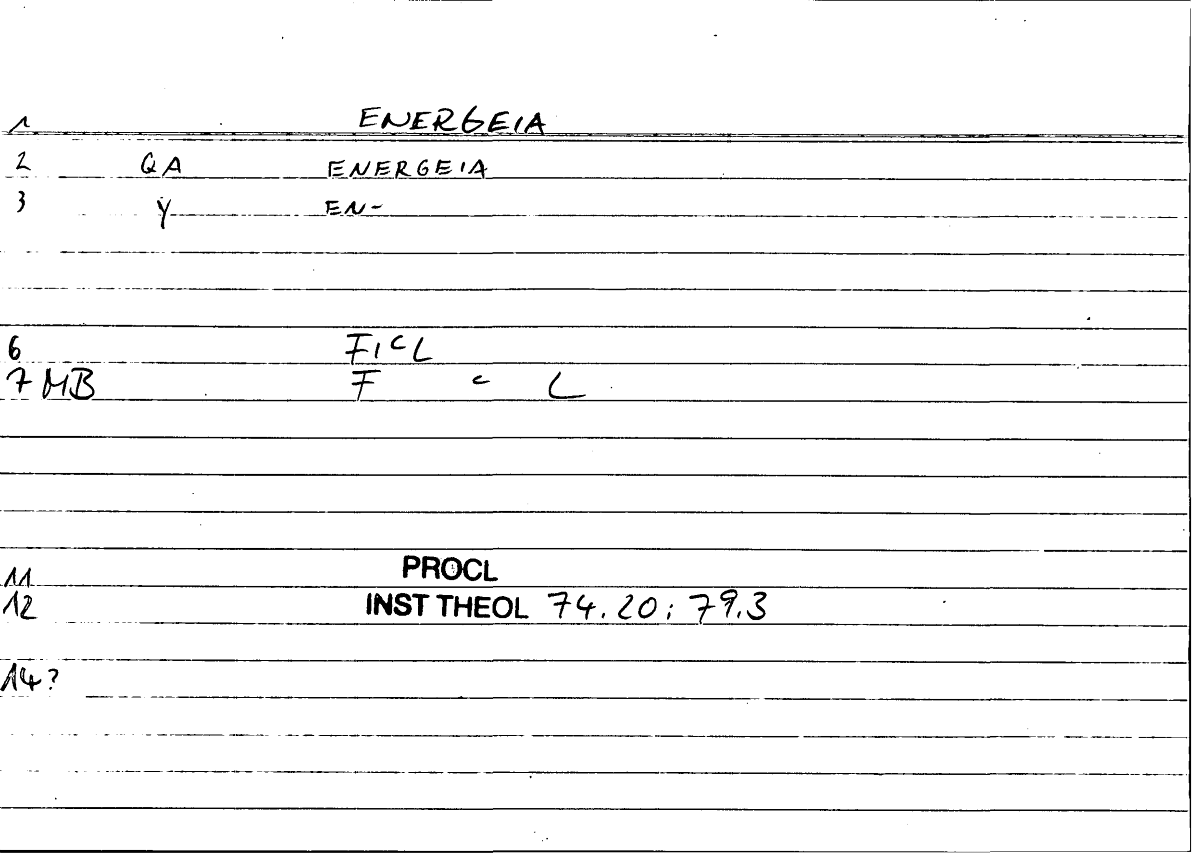 1 ENERGEIA
2 QA ENERGEIA
3 Y EN-
6 FICL
7 MB F C L
11 PROCL
12 INST THEOL 74.20; 79.3
14?